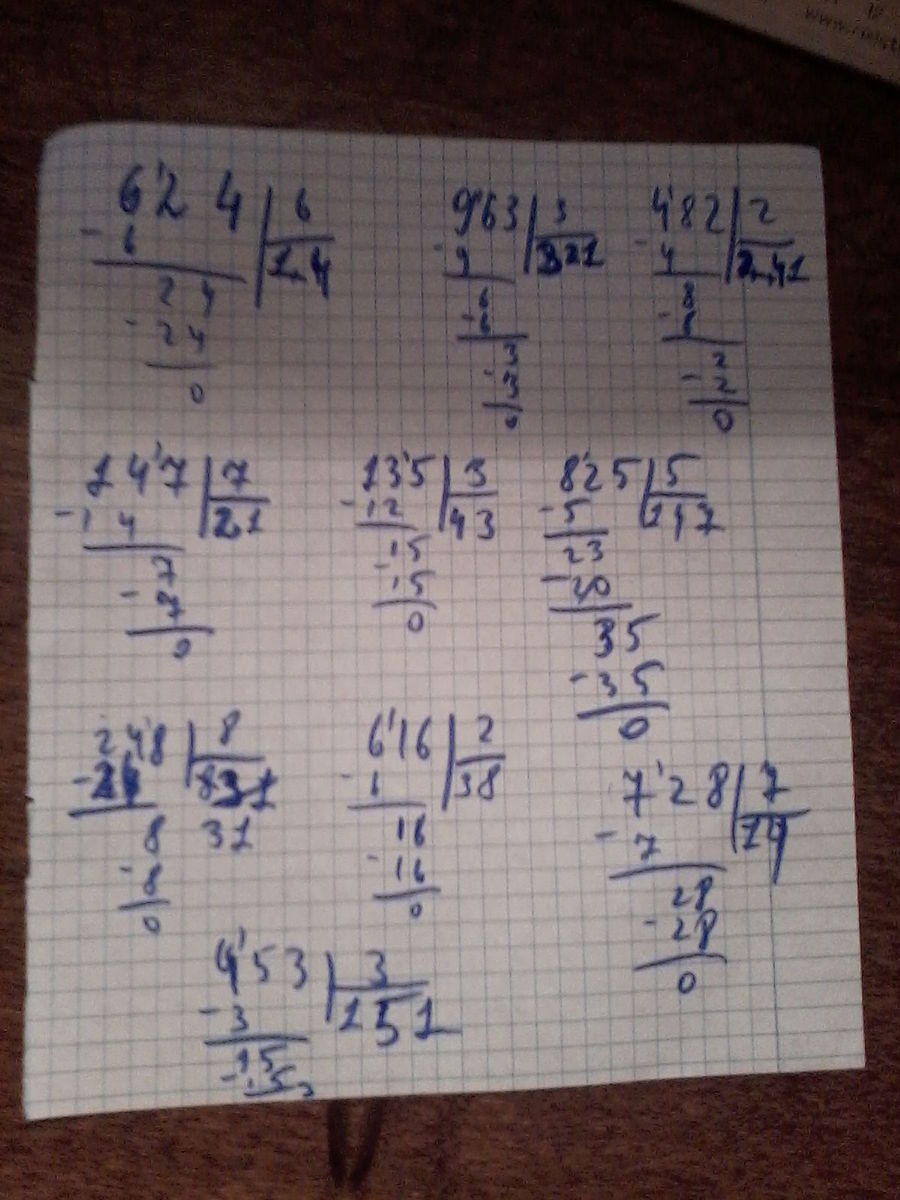 6'24 6
- 6 1 4
24
- 24
0
9'63 3
- 9 321
6
- 6
3
- 3
0
4'82 2
- 4 241
8
- 8
2
- 2
0
14'7 7
- 14 21
7
- 7
0
13'5 3
- 12 43
15
- 15
0
8'25 5
- 5 117
23
- 30
35
- 35
0
24'8 8
- 24
8 31
- 8
0
6'16 2
- 6 38
16
- 16
0
7'28 7
- 7 14
28
- 28
0
4'53 3
- 3 151
15
- 15